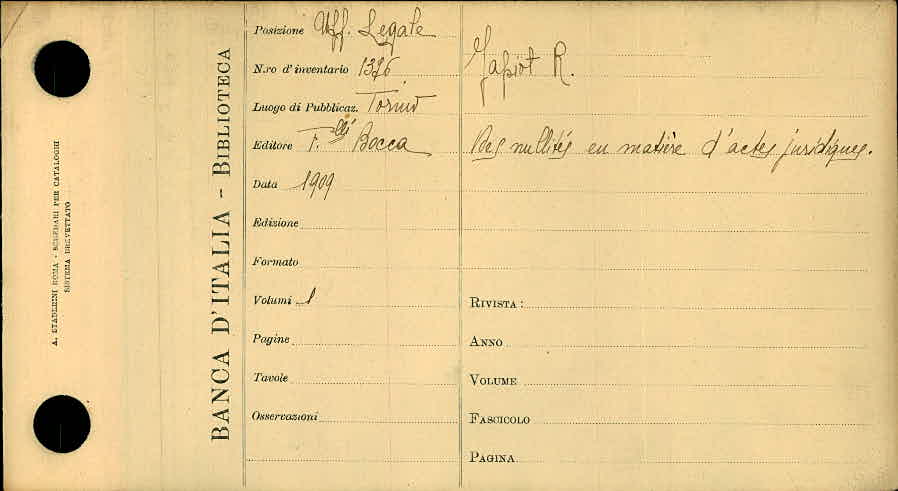 A. STADERINI ROMA - SCHEDARI PER CATALOGHI
SISTEMA BREVETTATO
BANCA D'ITALIA - BIBLIOTECA
Posizione Uff. Legale
N.ro d'inventario 1376
Luogo di Pubblicaz. Torino
Editore F.lli Bocca
Data 1909
Edizione
Formato
Volumi 1
Pagine
Tavole
Osservazioni
Japiot R.
Des nullités en matière d'actes juridiques.
RIVISTA :
ANNO
VOLUME
FASCICOLO
PAGINA